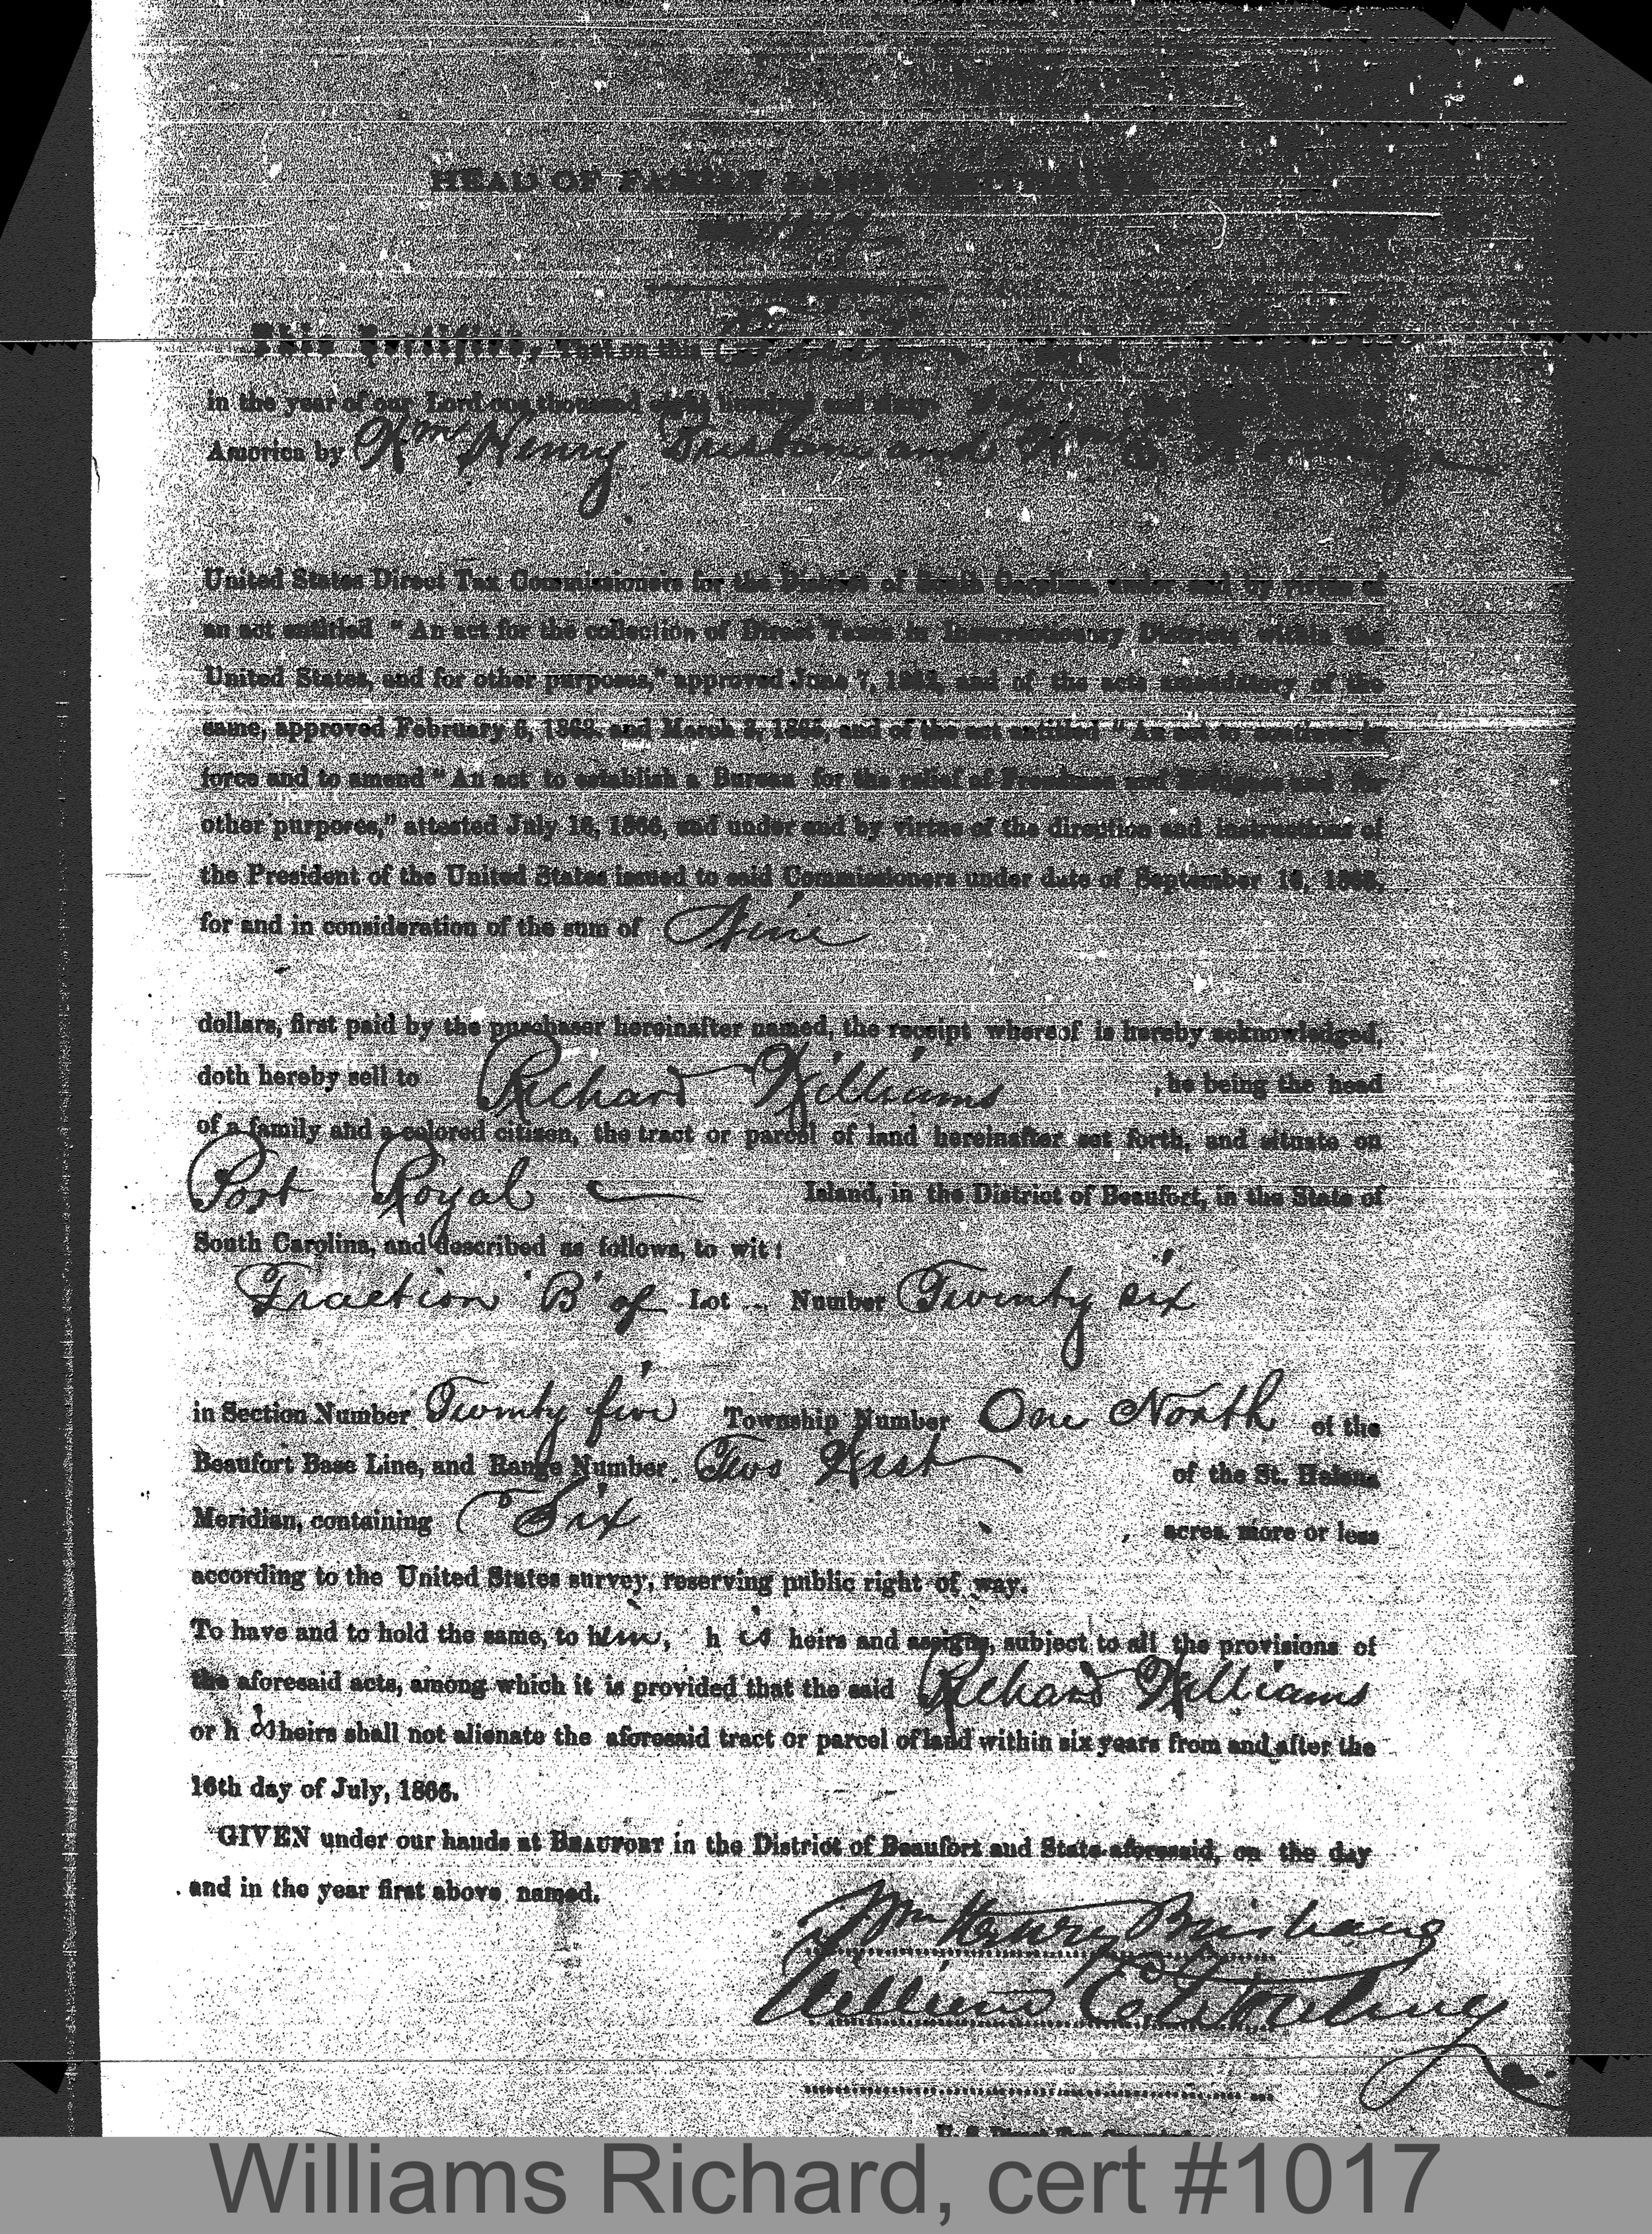 HEAD OF FAMILY LAND CERTIFICATE
This Certifies, That on this
in the year of our Lord one thousand eight hundred and sixty
America by Wm Henry Brisbane and Wm E. Wording
United States Direct Tax Commissioners for the District of South Carolina, under and by virtue of
an act entitled "An act for the collection of Direct Taxes in Insurrectionary Districts within the
United States, and for other purposes," approved June 7, 1862, and of the acts amendatory of the
same, approved February 6, 1863, and March 3, 1865, and of the act entitled "An act to continue in
force and to amend "An act to establish a Bureau for the relief of Freedmen and Refugees and for
other purposes," attested July 16, 1866, and under and by virtue of the direction and instructions of
the President of the United States issued to said Commissioners under date of September 16, 1863,
for and in consideration of the sum of Nine
dollars, first paid by the purchaser hereinafter named, the receipt whereof is hereby acknowledged,
doth hereby sell to Richard Williams , he being the head
of a family and a colored citizen, the tract or parcel of land hereinafter set forth, and situate on
Port Royal Island, in the District of Beaufort, in the State of
South Carolina, and described as follows, to wit:
Fraction 'B' of Lot Number Twenty six
in Section Number Twenty five Township Number One North of the
Beaufort Base Line, and Range Number Two West of the St. Helena
Meridian, containing Six acres, more or less
according to the United States survey, reserving public right of way.
To have and to hold the same, to him, his heirs and assigns, subject to all the provisions of
the aforesaid acts, among which it is provided that the said Richard Williams
or his heirs shall not alienate the aforesaid tract or parcel of land within six years from and after the
16th day of July, 1866.
GIVEN under our hands at BEAUFORT in the District of Beaufort and State aforesaid, on the day
and in the year first above named.
Wm Henry Brisbane
William E. Wording
Williams Richard, cert #1017